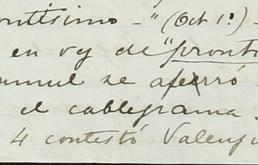 ontísimo - " (Oct 1º) -
en vez de "pronto
se aferró
el cablegrama
4 contestó Valen